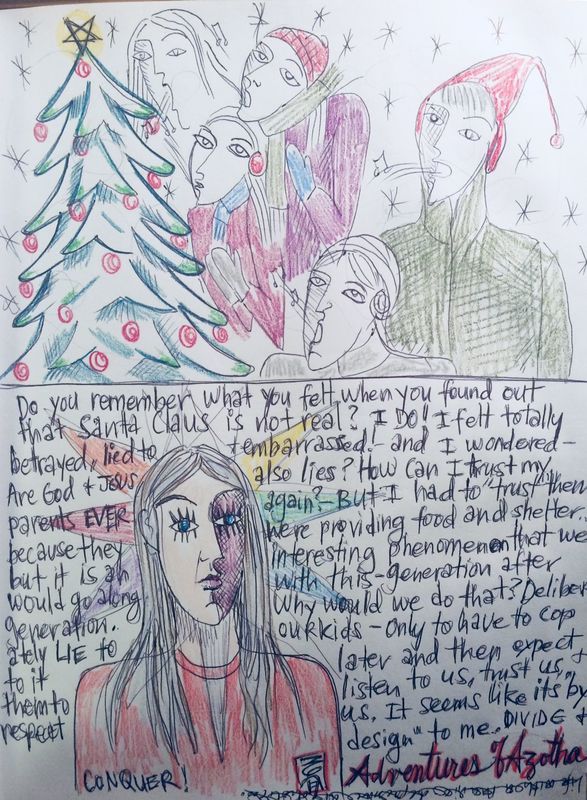 Do you remember what you felt when you found out
that Santa Claus is not real? I DO! I felt totally
betrayed, lied to + embarrassed! - and I wondered -
Are God + JESUS also lies? How can I trust my
parents EVER again? - BUT I had to "trust" them
because they were providing food and shelter.
but it is an interesting phenomenon that we
would go along with this - generation after
generation. Why would we do that? Deliber
ately LIE to our kids - only to have to cop
to it later and then expect
them to listen to us, trust us,
respect us. It seems like its by
design" to me. DIVIDE +
CONQUER!
Adventures of Azotha